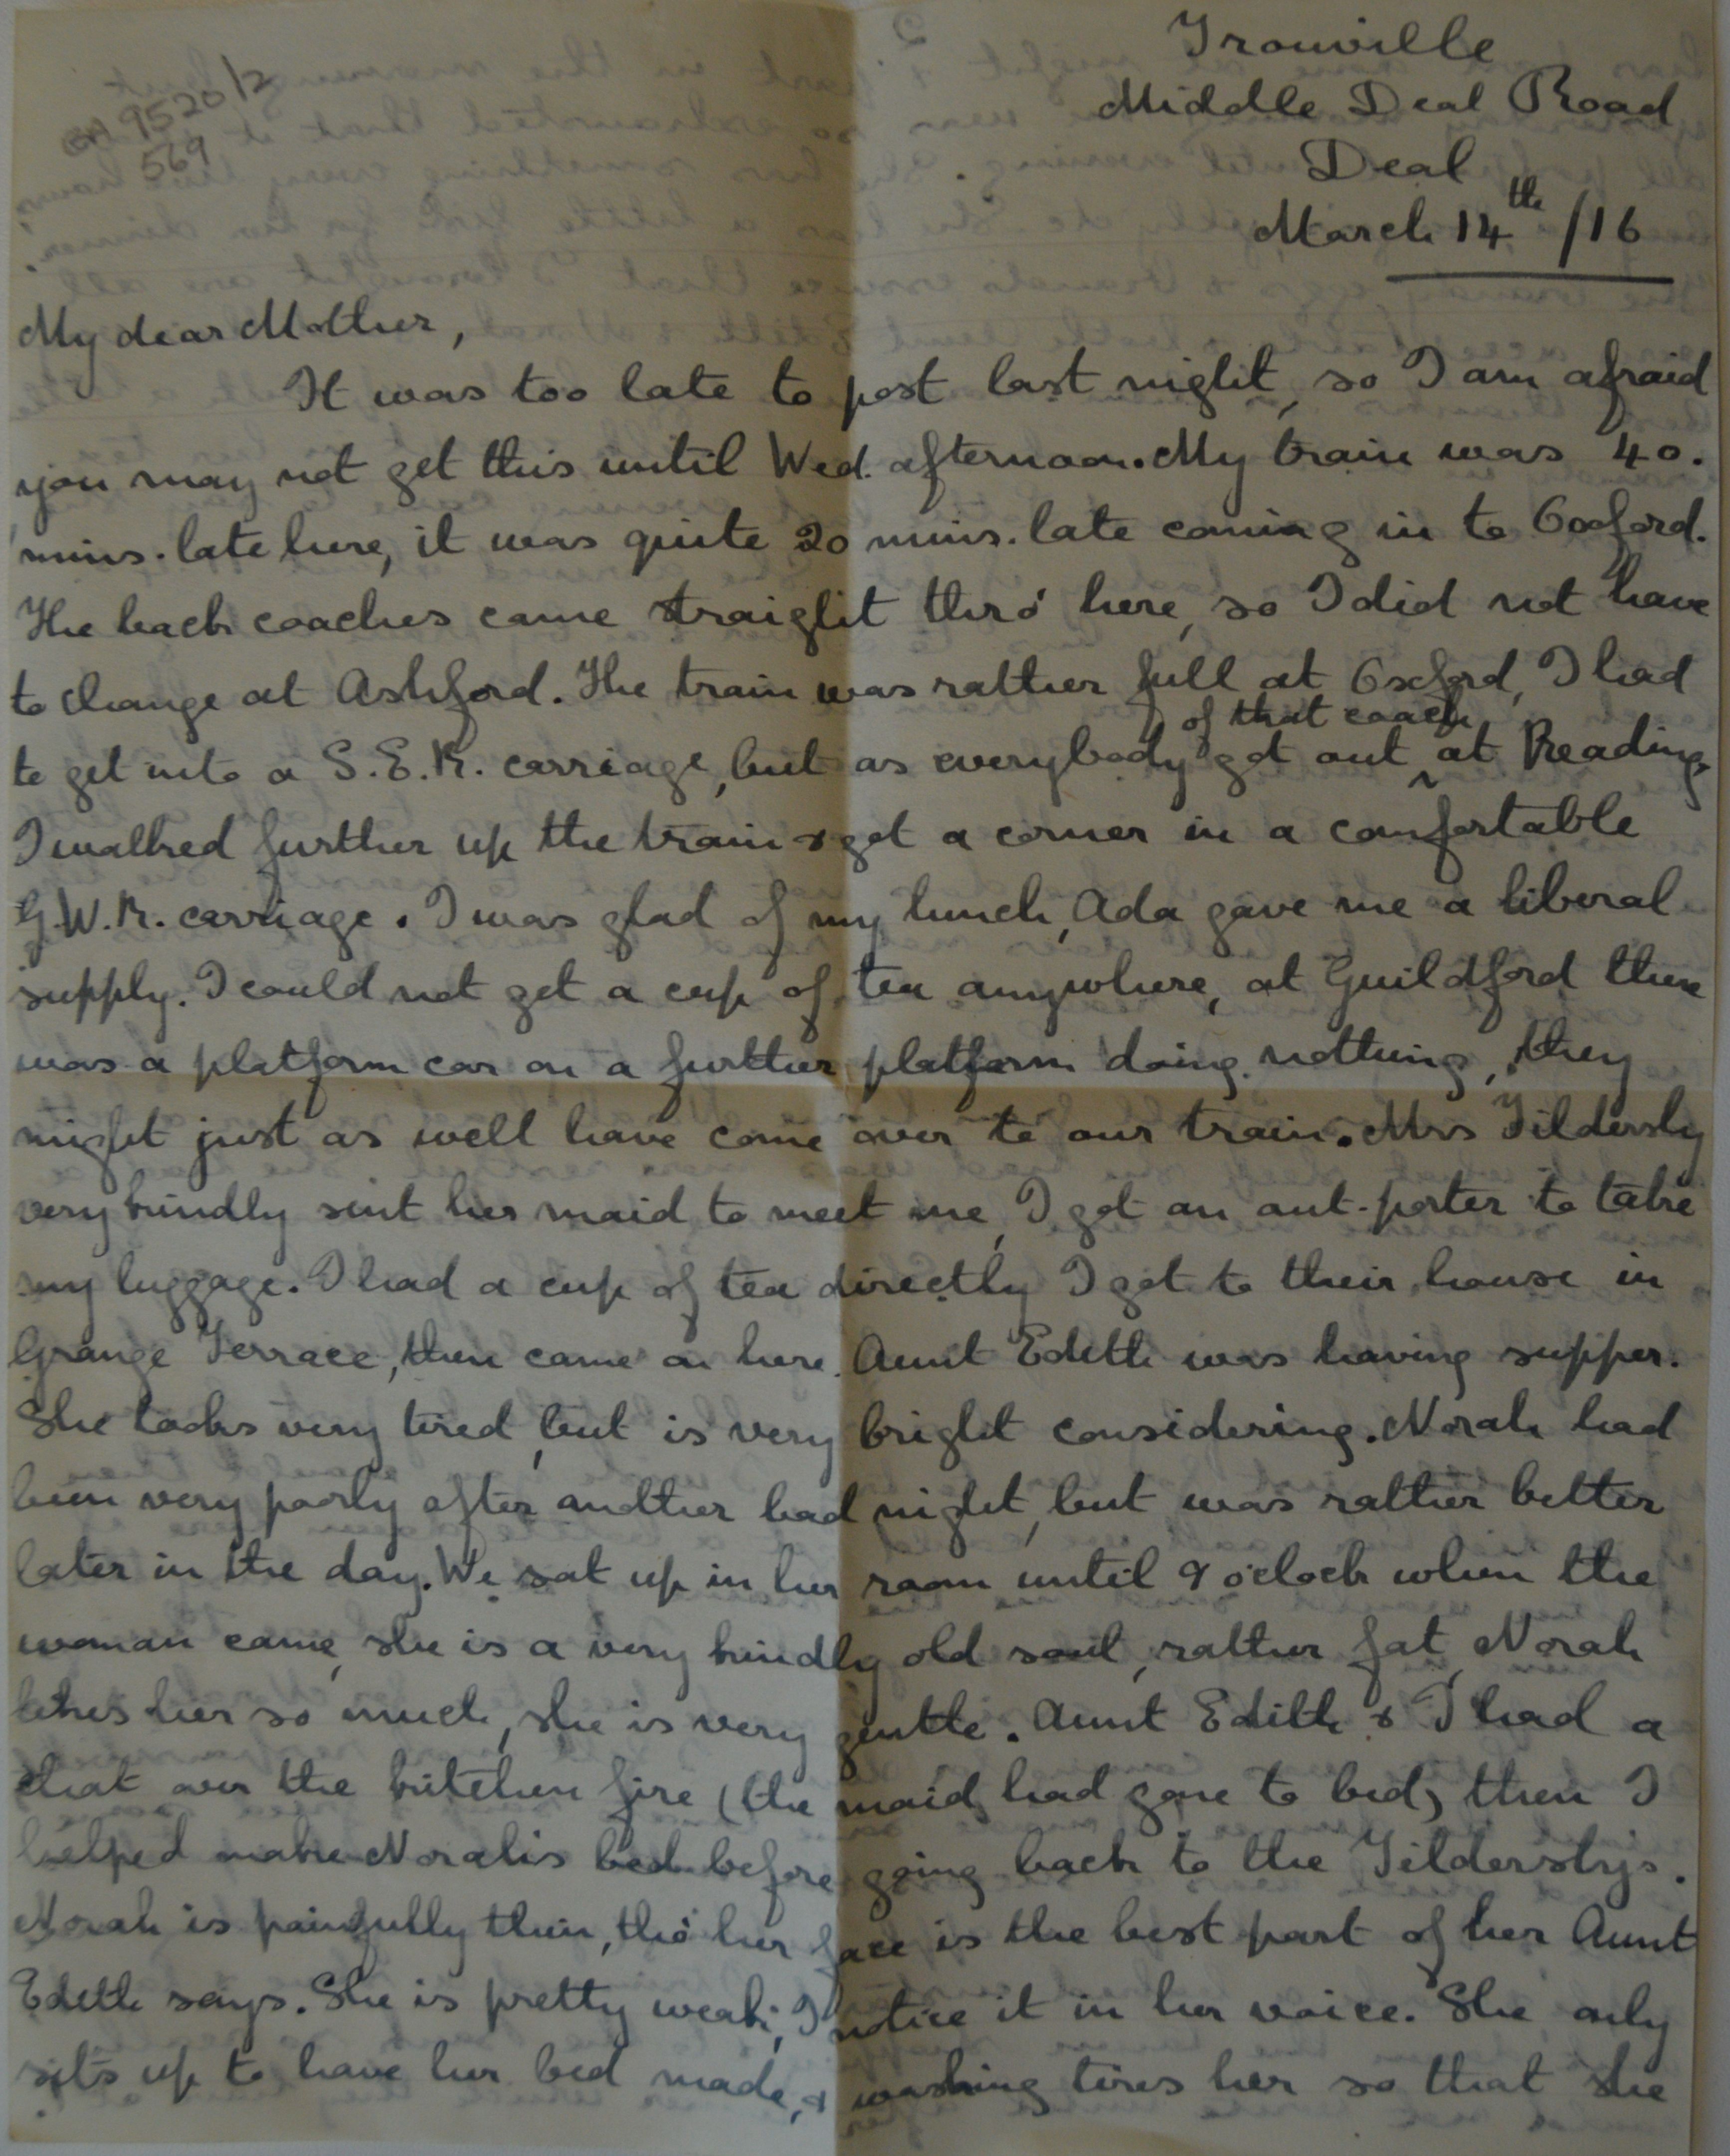 GA 9520/2
569
Trouville
Middle Deal Road
Deal
March 14th /16
My dear Mother,
It was too late to post last night, so I am afraid
you may not get this until Wed. afternoon. My train was 40.
mins. late here, it was quite 20 mins. late coming in to Oxford.
The back coaches came straight thro' here, so I did not have
to change at Ashford. The train was rather full at Oxford, I had
of that coach
to get into a S.E.R. carriage, but as everybody got out ^ at Reading,
I walked further up the train & got a corner in a comfortable
G.W.R. carriage. I was glad of my lunch, Ada gave me a liberal
supply. I could not get a cup of tea anywhere, at Guildford there
was a platform car on a further platform doing nothing, they
might just as well have come over to our train. Mrs Tildersly
very kindly sent her maid to meet me, I got an out-porter to take
my luggage. I had a cup of tea directly I got to their house in
Grange Terrace, then came on here. Aunt Edith was having supper.
She looks very tired, but is very bright considering. Norah had
been very poorly after another bad night, but was rather better
later in the day. We sat up in her room until 9 o'clock when the
woman came, she is a very kindly old soul, rather fat, Norah
likes her so much, she is very gentle. Aunt Edith & I had a
chat over the kitchen fire (the maid had gone to bed) then I
helped make Norah's bed before going back to the Tilderslys.
Norah is painfully thin, tho' her face is the best part of her Aunt
Edith says. She is pretty weak, I notice it in her voice. She only
sits up to have her bed made, & washing tires her so that she